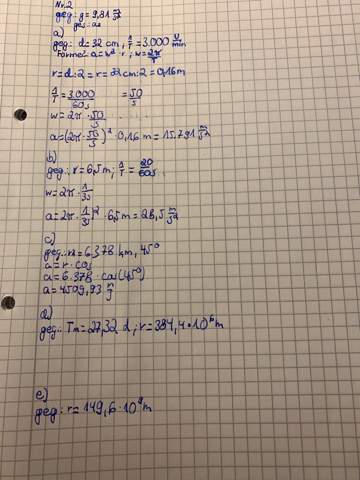 Nr.2
geg.: g = 9,81 m/s²
ges.: az
a)
geg.: d = 32 cm, 1/T = 3.000 U/min
Formel: a = w² · r ; w = 2π/T
r = d : 2 = r = 32 cm : 2 = 0,16 m
1/T = 3.000/60s = 50/s
w = 2π · 50/s
a = (2π · 50/s)² · 0,16 m = 15.791 m/s²
b)
geg.: r = 6,5 m ; 1/T = 20/60s
w = 2π · 1/3s
a = 2π · 1/3s)² · 6,5 m = 28,5 m/s²
c)
geg.: r = 6.378 km, 45°
a = r · cos
a = 6.378 · cos(45°)
a = 4509,93
d)
geg.: Tm = 27,32 d ; r = 384,4 · 10⁶ m
e)
geg.: r = 149,6 · 10⁹ m